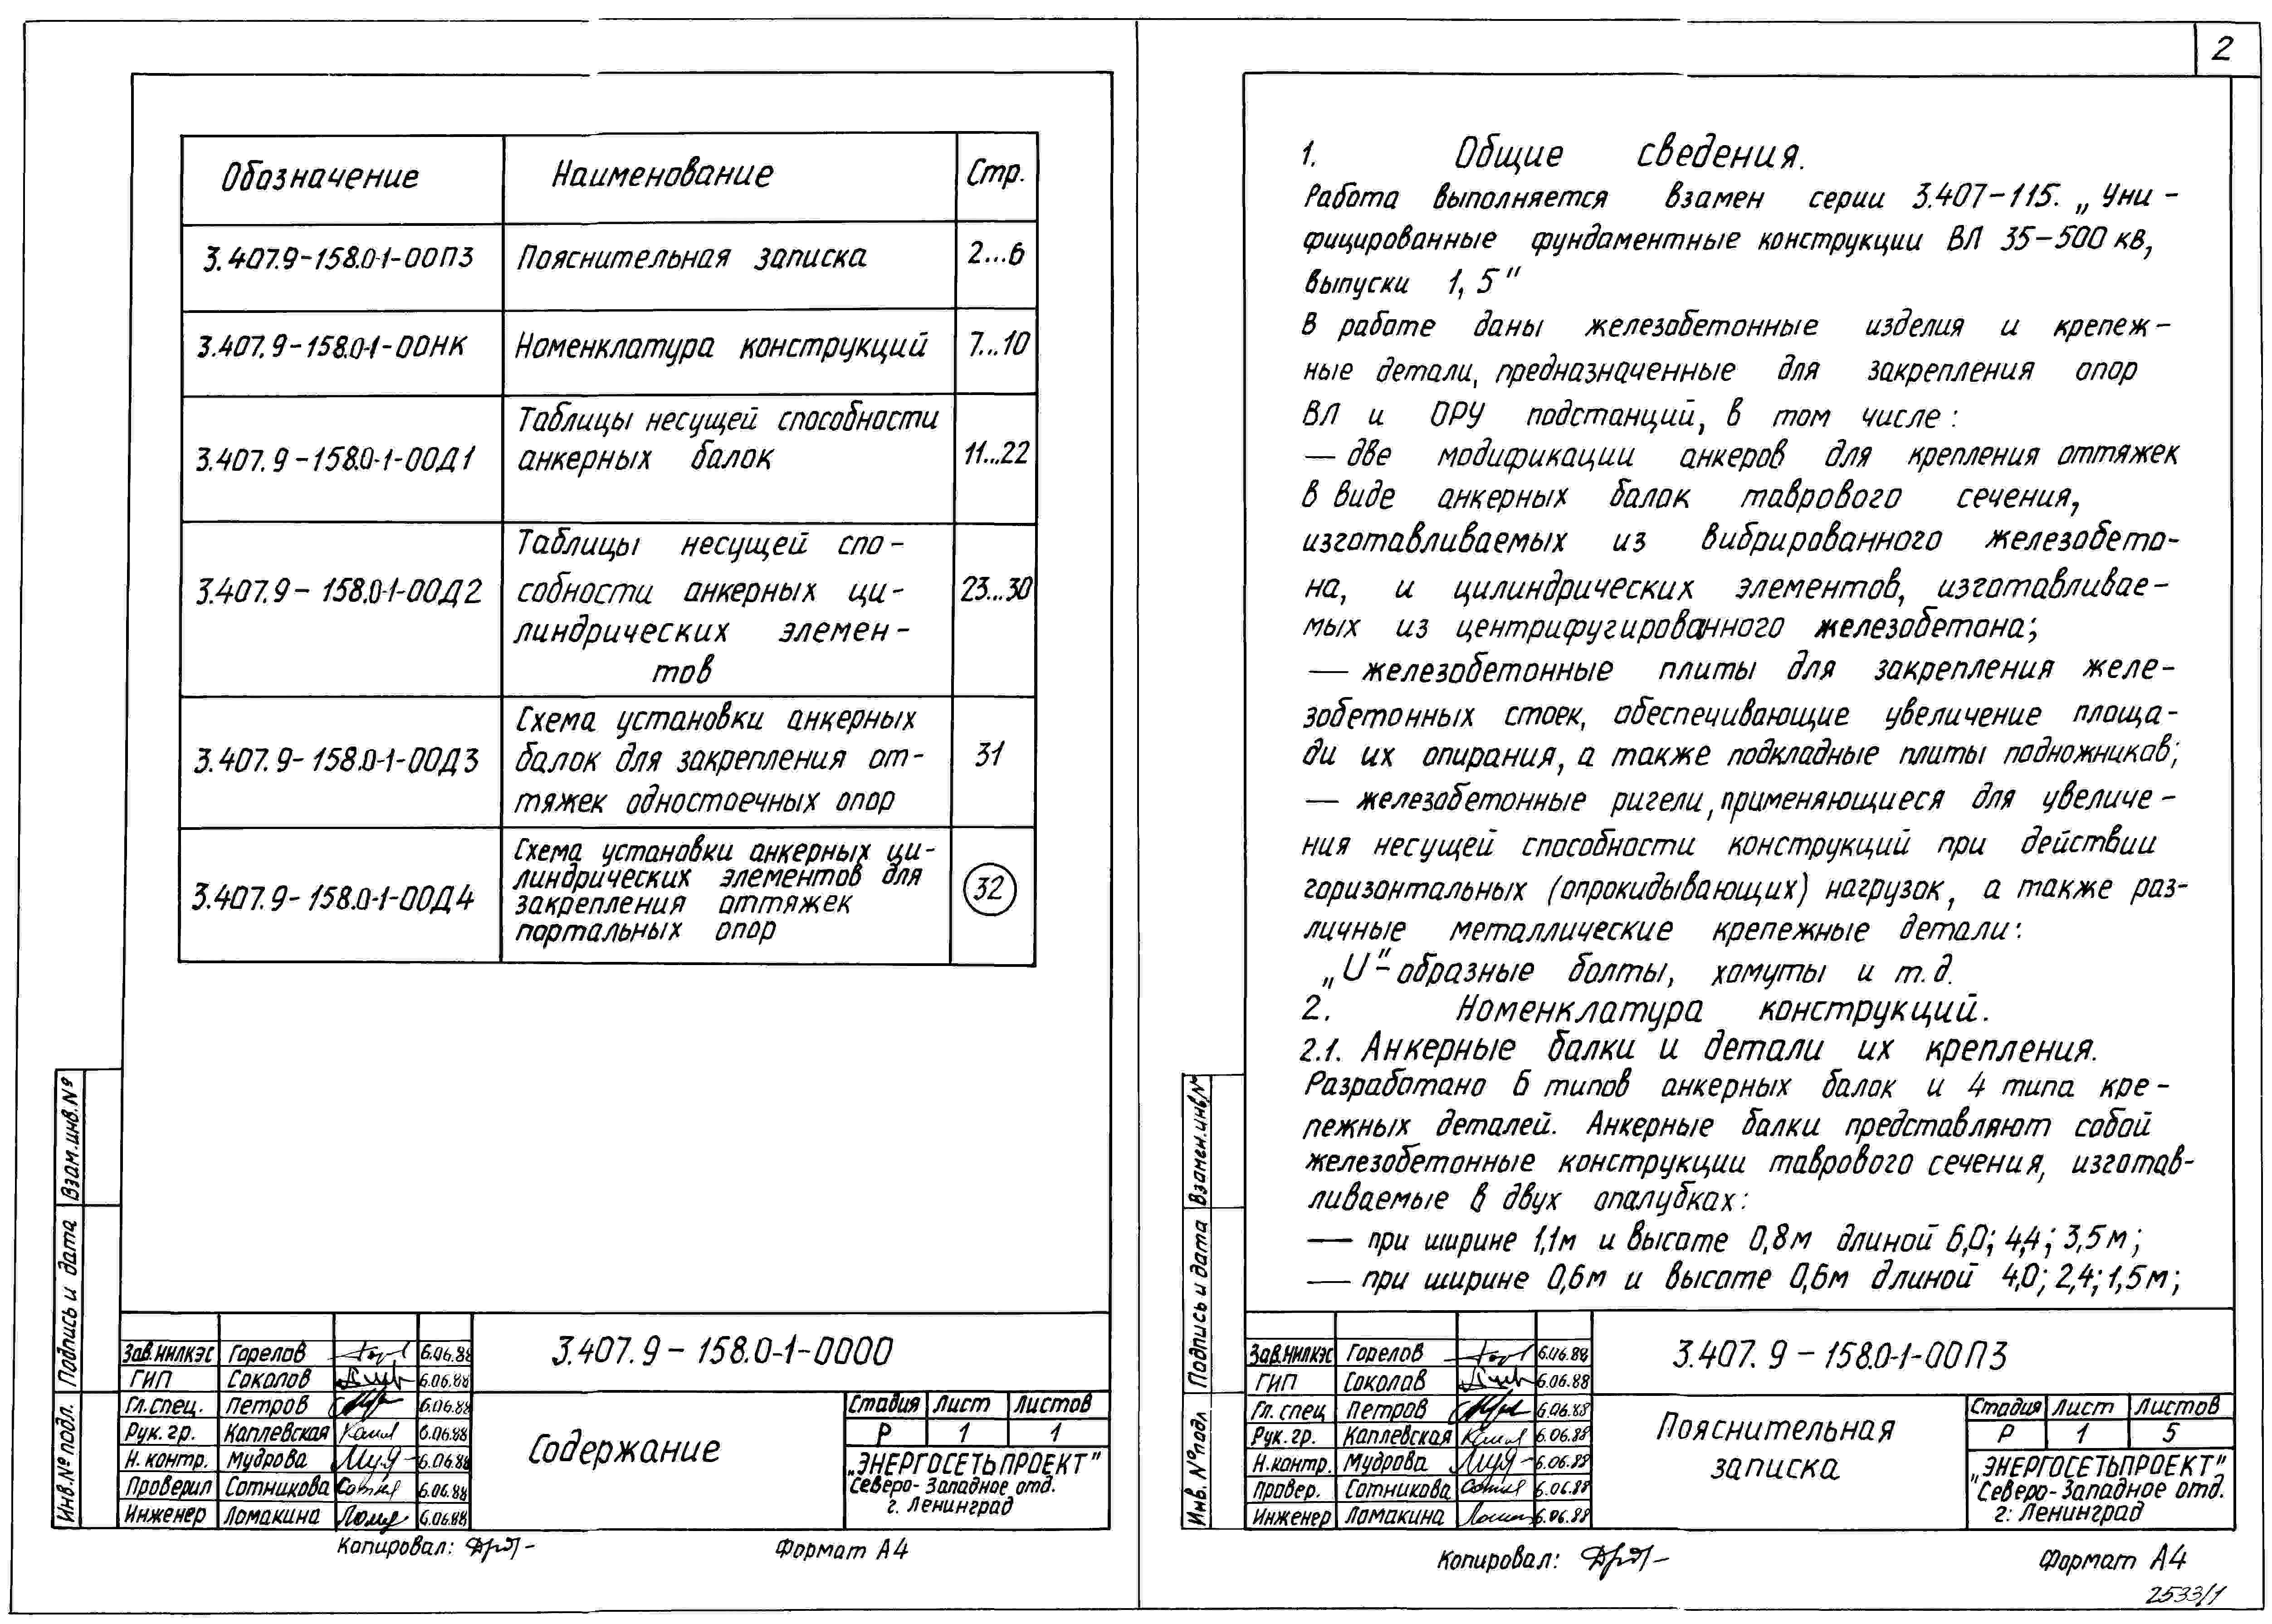 2
Обозначение Наименование Стр.
3.407.9-158.0-1-00ПЗ Пояснительная записка 2...6
3.407.9-158.0-1-00НК Номенклатура конструкций 7...10
Таблицы несущей способности
3.407.9-158.0-1-00Д1 анкерных балок 11...22
Таблицы несущей спо-
3.407.9-158.0-1-00Д2 собности анкерных ци- 23...30
линдрических элемен-
тов
Схема установки анкерных
3.407.9-158.0-1-00Д3 балок для закрепления от- 31
тяжек одностоечных опор
Схема установки анкерных ци-
линдрических элементов для
3.407.9-158.0-1-00Д4 закрепления оттяжек 32
портальных опор
Взам.инв.№
Подпись и дата
Инв.№ подл.
3.407.9-158.0-1-0000
Зав.НИЛКЭС Горелов 6.06.88
ГИП Соколов 6.06.88
Гл.спец. Петров 6.06.88
Рук.гр. Каплевская 6.06.88
Н.контр. Мудрова 6.06.88
Проверил Сотникова 6.06.88
Инженер Ломакина 6.06.88
Содержание
Стадия Лист Листов
Р 1 1
„ЭНЕРГОСЕТЬПРОЕКТ"
Северо-Западное отд.
г. Ленинград
Копировал:
Формат А4
1. Общие сведения.
Работа выполняется взамен серии 3.407-115. „Уни-
фицированные фундаментные конструкции ВЛ 35-500 кВ,
выпуски 1, 5"
В работе даны железобетонные изделия и крепеж-
ные детали, предназначенные для закрепления опор
ВЛ и ОРУ подстанций, в том числе:
— две модификации анкеров для крепления оттяжек
в виде анкерных балок таврового сечения,
изготавливаемых из вибрированного железобето-
на, и цилиндрических элементов, изготавливае-
мых из центрифугированного железобетона;
— железобетонные плиты для закрепления желе-
зобетонных стоек, обеспечивающие увеличение площа-
ди их опирания, а также подкладные плиты подножников;
— железобетонные ригели, применяющиеся для увеличе-
ния несущей способности конструкций при действии
горизонтальных (опрокидывающих) нагрузок, а также раз-
личные металлические крепежные детали:
„U"-образные болты, хомуты и т.д.
2. Номенклатура конструкций.
2.1. Анкерные балки и детали их крепления.
Разработано 6 типов анкерных балок и 4 типа кре-
пежных деталей. Анкерные балки представляют собой
железобетонные конструкции таврового сечения, изготав-
ливаемые в двух опалубках:
— при ширине 1,1м и высоте 0,8м длиной 6,0; 4,4; 3,5м;
— при ширине 0,6м и высоте 0,6м длиной 4,0; 2,4; 1,5м;
Взамен.инв.№
Подпись и дата
Инв.№ подл
3.407.9-158.0-1-00ПЗ
Зав.НИЛКЭС Горелов 6.06.88
ГИП Соколов 6.06.88
Гл. спец Петров 6.06.88
Рук.гр. Каплевская 6.06.88
Н.контр. Мудрова 6.06.88
Провер. Сотникова 6.06.88
Инженер Ломакина 6.06.88
Пояснительная
записка
Стадия Лист Листов
Р 1 5
„ЭНЕРГОСЕТЬПРОЕКТ"
Северо-Западное отд.
г. Ленинград
Копировал:
Формат А4
2533/1